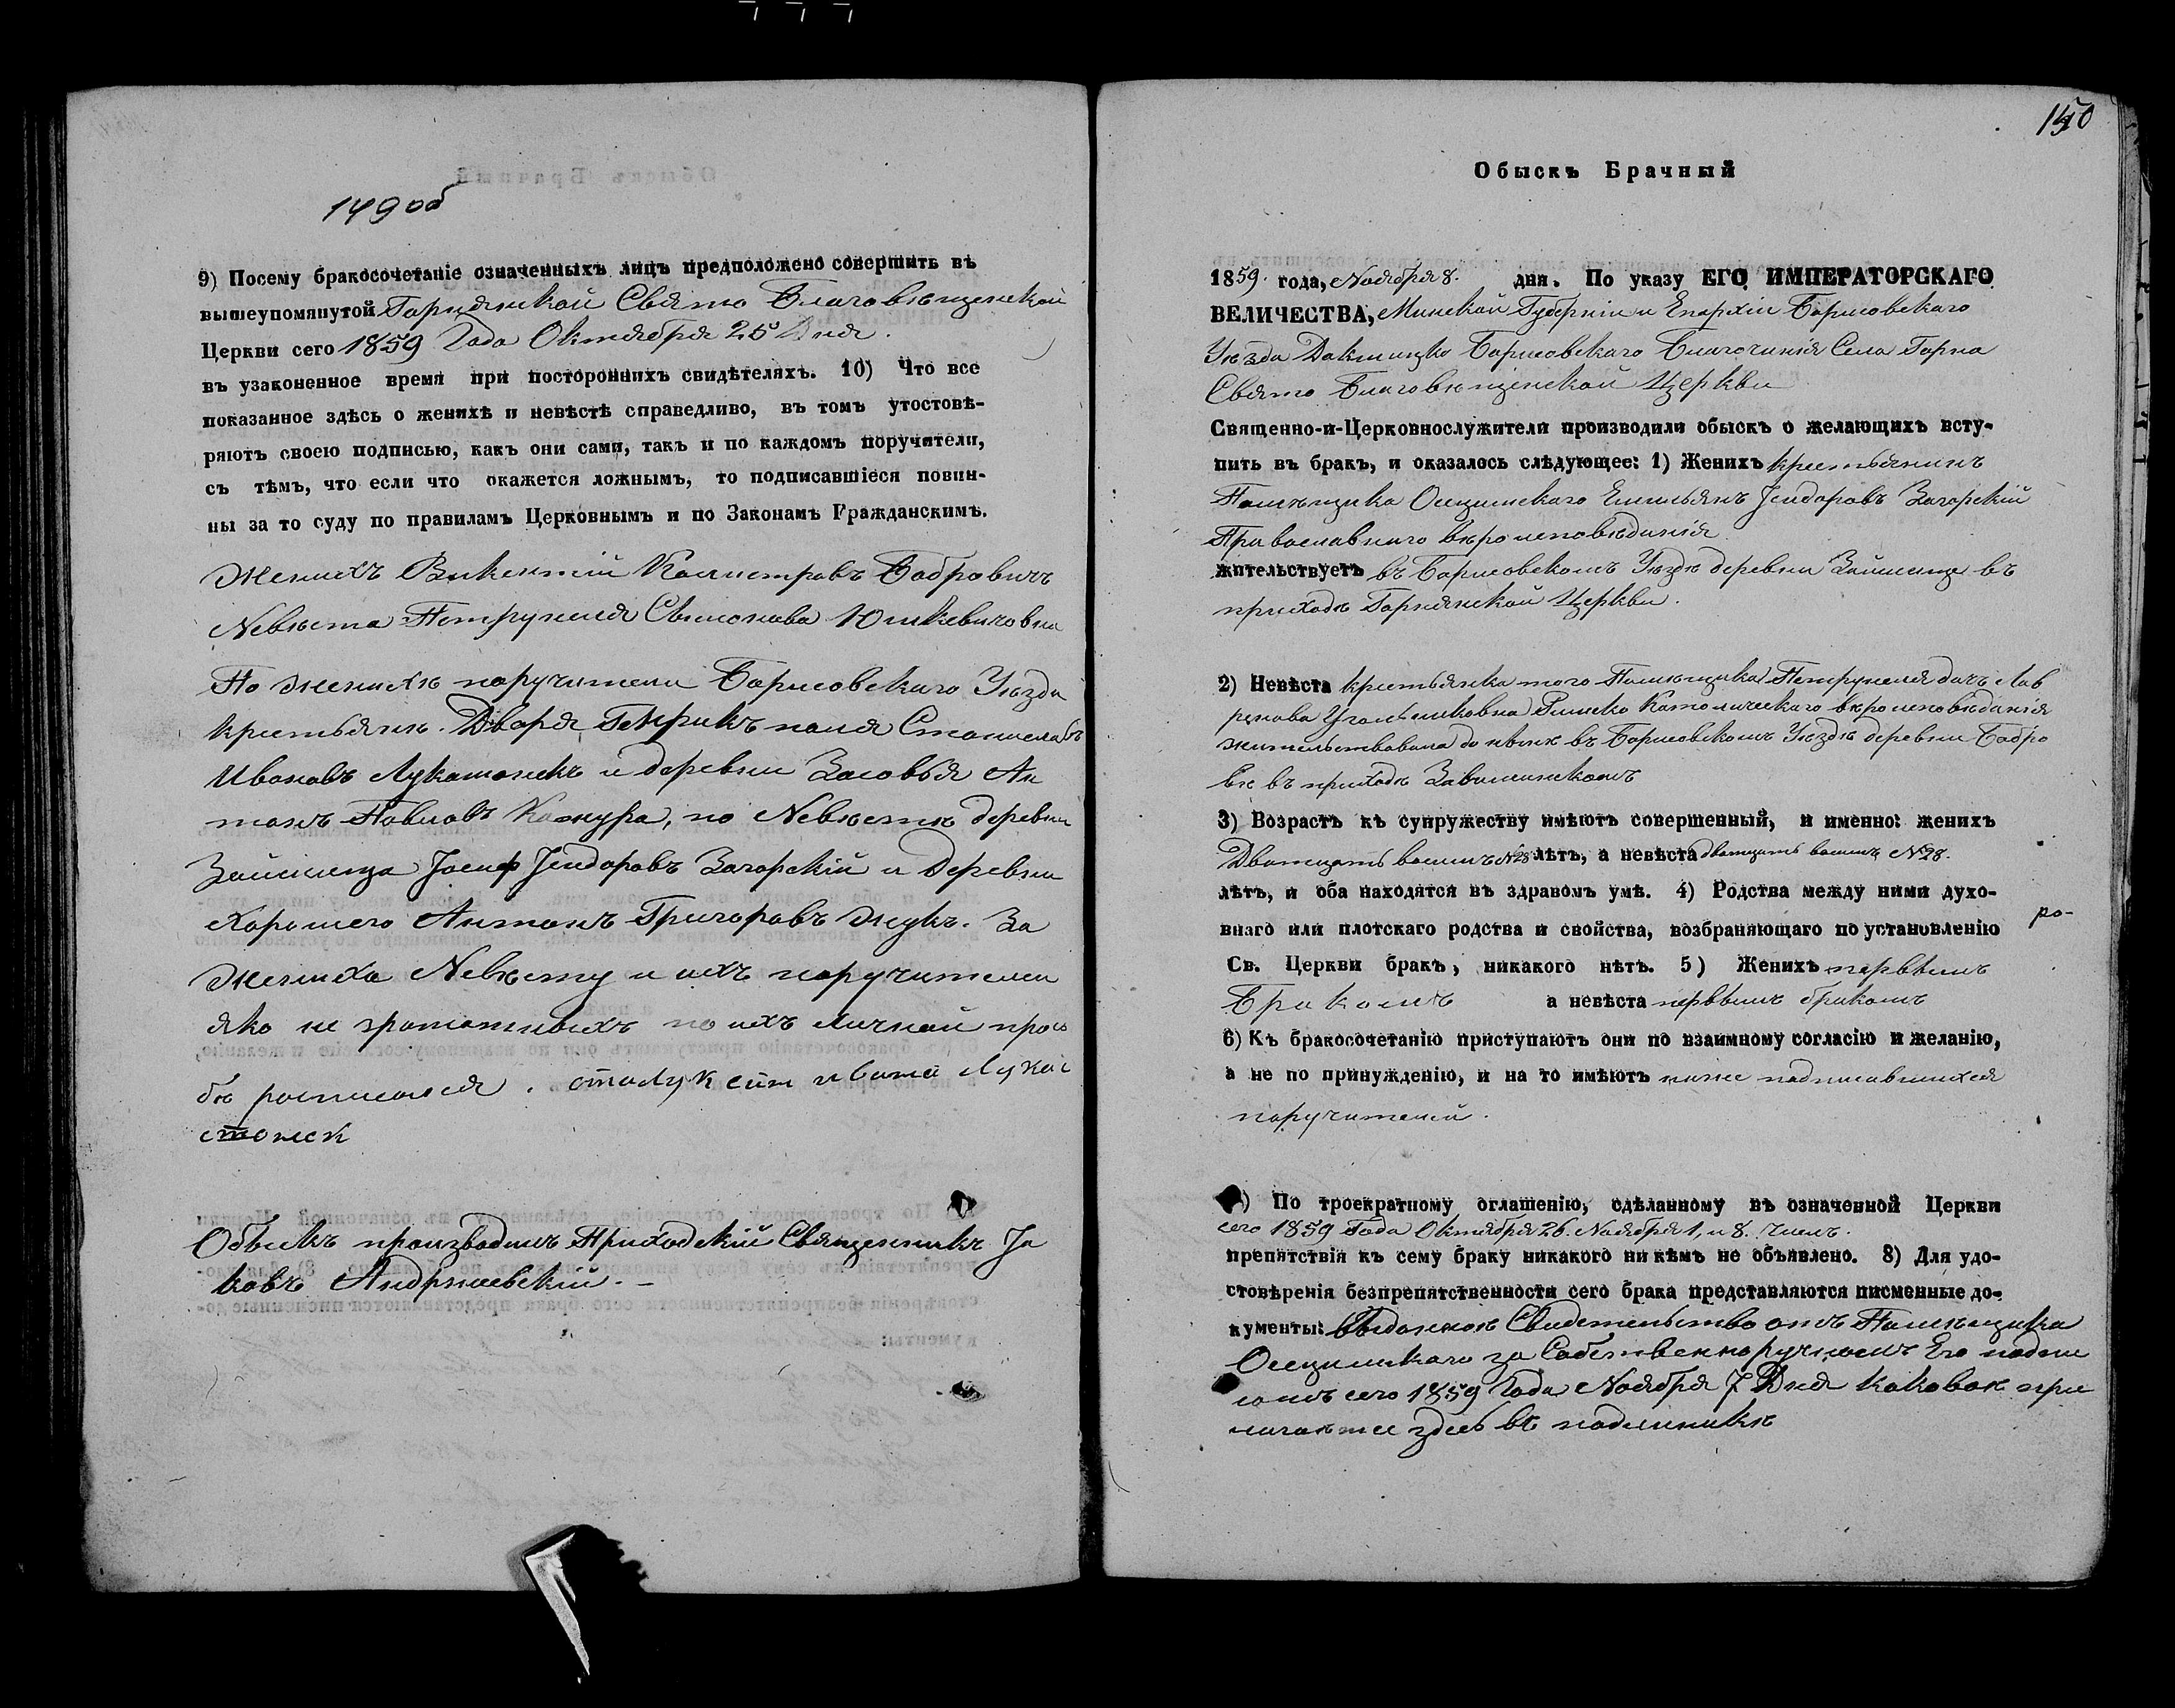 149 об
9) Посему бракосочетаніе означенныхъ лицъ предположено совершить въ
вышеупомянутой Горнянской Свято Благовѣщенской
Церкви сего 1859 Года Октября 25 Дня.
въ узаконенное время при постороннихъ свидѣтеляхъ. 10) Что все
показанное здѣсь о женихѣ и невѣстѣ справедливо, въ томъ утостовѣ-
ряютъ своею подписью, какъ они сами, такъ и по каждомъ поручители,
съ тѣмъ, что если что окажется ложнымъ, то подписавшіеся повин-
ны за то суду по правиламъ Церковнымъ и по Законамъ Гражданскимъ.
Женихъ Викентій Бобровичъ
Nевѣста Петрунеля Юшкевичовна
По женихѣ поручители Борисовскаго Уѣзда
крестьяне. Двора Станиславъ
Ивановъ и деревни Ан
тонъ Павловъ, по Nевѣстѣ деревни
Іосиф Ісидоровъ Загорскій и Деревни
Хорошего Антонъ Григоровъ Жукъ. За
жениха Nевѣсту и ихъ поручителей
яко не грамотныхъ по ихъ личной прось
бѣ росписался.
Обыскъ производилъ Приходскій Священникъ Іа
ковъ Андріевскій. –
150
Обыскъ Брачный
1859. года, Ноября 8. дня. По указу ЕГО ИМПЕРАТОРСКАГО
ВЕЛИЧЕСТВА, Минской Губерніи и Епархіи Борисовскаго
Уѣзда Докшицко Борисовскаго Благочинія Села Горна
Свято Благовѣщенской Церкви
Священно-и-Церковнослужители производили обыскъ о желающихъ всту-
пить въ бракъ, и оказалось слѣдующее: 1) Женихъ крестьянинъ
Помѣщика Емильянъ Ісидоровъ Загорскій
Православнаго вѣроисповѣданія
жительствуетъ въ Борисовскомъ Уѣздѣ деревни въ
приходѣ Горнянской Церкви.
2) Невѣста крестьянка того Помѣщика Петрунеля дочь Лав
ренова Римско Католическаго вѣроисповѣданія
жительствовала до нынѣ въ Борисовскомъ Уѣздѣ деревни Бобро
вѣ въ приходѣ
3) Возрастъ къ супружеству имѣютъ совершенный, и именно: женихъ
Двотцать восимъ N28 лѣтъ, а невѣста двотцать восимъ N28.
лѣтъ, и оба находятся въ здравомъ умѣ. 4) Родства между ними духо-
внаго или плотскаго родства и свойства, возбраняющаго по установленію
ро-
Св. Церкви бракъ, никакого нѣтъ. 5) Женихъ первымъ
Бракомъ а невѣста первымъ бракомъ
6) Къ бракосочетанію приступаютъ они по взаимному согласію и желанію,
а не по принужденію, и на то имѣютъ ниже подписавшихся
поручителей.
) По троекратному оглашенію, сдѣланному въ означенной Церкви
сего 1859 Года Октября 26. Ноября 1, и 8. Числъ.
препятствія къ сему браку никакого ни кѣмъ не объявлено. 8) Для удо-
стовѣренія безпрепятственности сего брака представляются писменные до-
кументы: Свидетельство отъ Помѣщика
за Собственноручнымъ Его подпи
сомъ сего 1859 Года Ноября 7 Дня каковое при
лагается здесь въ подлинникѣ